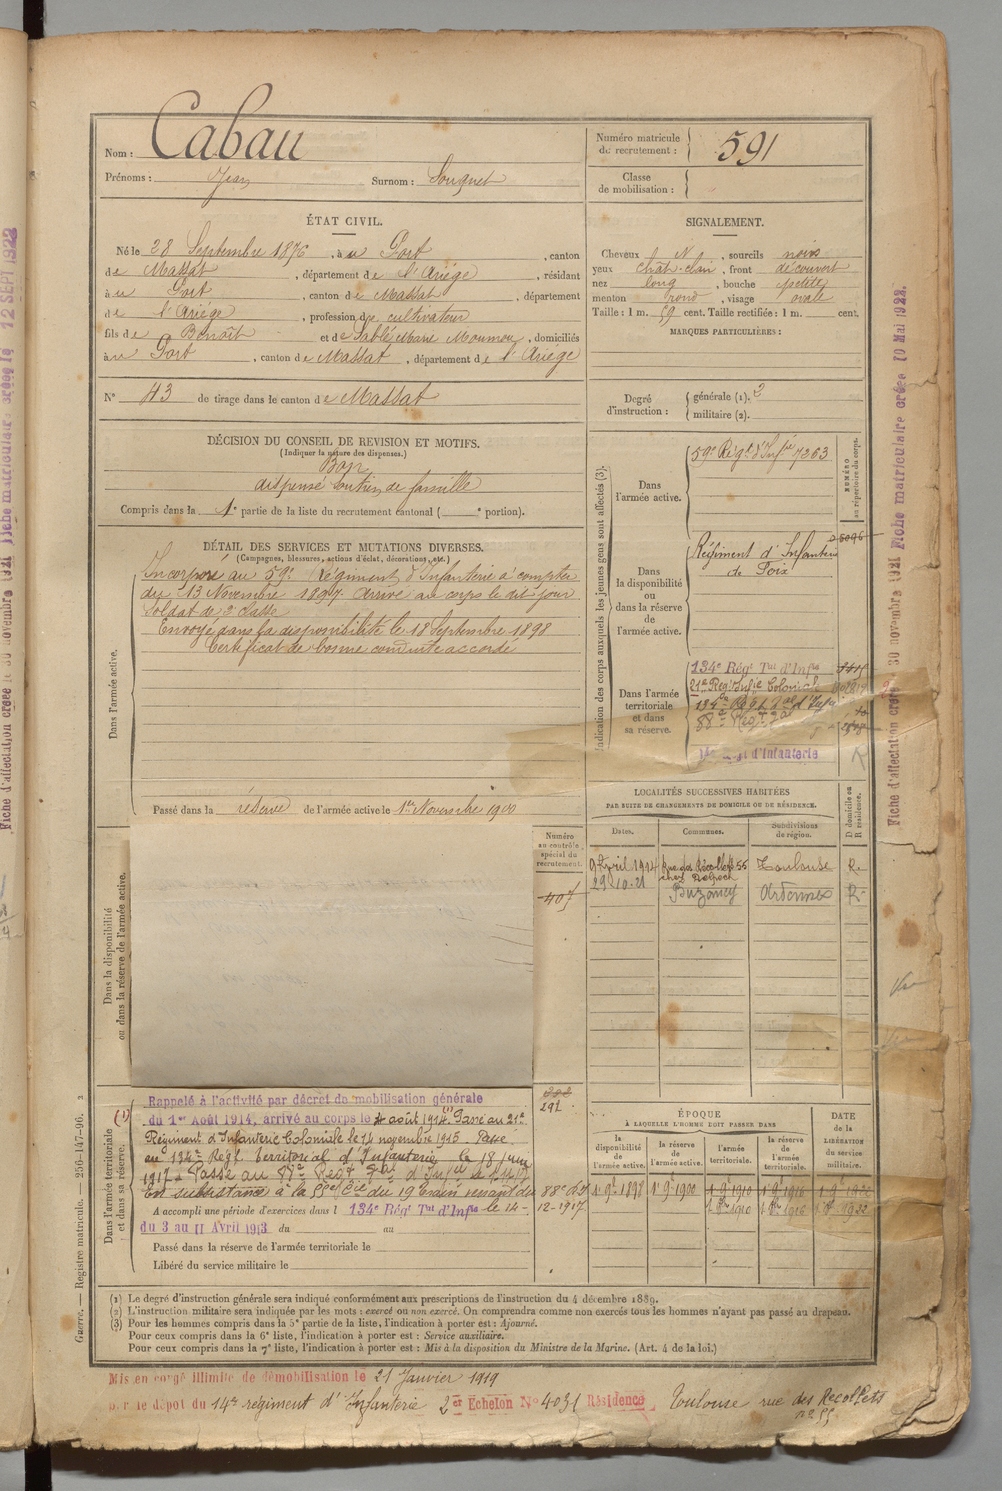 Nom : Cabau
Prénoms : Jean Surnom : Souquet
Numéro matricule de recrutement : 591
Classe de mobilisation :
ÉTAT CIVIL.
Né le 28 Septembre 1876, à u Port, canton
de Massat, département de l'Ariége, résidant
à u Port, canton de Massat, département
de l'Ariége, profession de cultivateur
fils de Benoît et de Marie, domiciliés
à u Port, canton de Massat, département de l'Ariége
N° 43 de tirage dans le canton de Massat
SIGNALEMENT.
Cheveux chât. N, sourcils noirs
yeux chât-clair, front découvert
nez long, bouche petite
menton rond, visage ovale
Taille : 1 m. 59 cent. Taille rectifiée : 1 m. cent.
MARQUES PARTICULIÈRES :
Degré d'instruction : générale (1). 2
militaire (2).
DÉCISION DU CONSEIL DE REVISION ET MOTIFS.
(Indiquer la nature des dispenses.)
Bon
dispensé soutien de famille
Compris dans la 1e partie de la liste du recrutement cantonal ( e portion).
DÉTAIL DES SERVICES ET MUTATIONS DIVERSES.
(Campagnes, blessures, actions d'éclat, décorations, etc.)
Dans l'armée active.
Incorporé au 59e Régiment d'Infanterie à compter
du 13 Novembre 1897. Arrivé au corps le dit jour
Soldat de 2e classe
Envoyé dans la disponibilité le 18 Septembre 1898
Certificat de bonne conduite accordé
Passé dans la réserve de l'armée active le 1er Novembre 1900
Indication des corps auxquels les jeunes gens sont affectés (3).
NUMÉRO au répertoire du corps.
Dans l'armée active.
59e Régt d'Infrie 7263
Dans la disponibilité ou dans la réserve de l'armée active.
Régiment d'Infanterie
de Foix
Dans l'armée territoriale et dans sa réserve.
134e Régt Tal d'Infie
21e Régt Infie Coloniale
134e Régt Tal d'Infie
88e Régt
d'Infanterie
LOCALITÉS SUCCESSIVES HABITÉES
PAR SUITE DE CHANGEMENTS DE DOMICILE OU DE RÉSIDENCE.
Dates. Communes. Subdivisions de région. D domicile ou R résidence.
9 Avril 1914 Rue des Récollets 55 Toulouse R.
chez
29-10-21 Buzancy Ardennes R.
Dans la disponibilité ou dans la réserve de l'armée active.
Numéro au contrôle spécial du recrutement.
407
291
Dans l'armée territoriale et dans sa réserve.
Rappelé à l'activité par décret de mobilisation générale
du 1er Août 1914, arrivé au corps le 4 août 1914. (1) Passé au 21e
Régiment d'Infanterie Coloniale le 14 novembre 1915. Passé
au 134e Régt Territorial d'Infanterie le 18 juin
1917. Passé au
En subsistance à la Cie du 19e train venant du 88e
A accompli une période d'exercices dans l 134e Régt Tal d'Infie le 14-12-1917.
du 3 au 11 Avril 1913 du au
Passé dans la réserve de l'armée territoriale le
Libéré du service militaire le
ÉPOQUE
À LAQUELLE L'HOMME DOIT PASSER DANS
la disponibilité de l'armée active. la réserve de l'armée active. l'armée territoriale. la réserve de l'armée territoriale.
DATE de la LIBÉRATION du service militaire.
1 9bre 1898 1 9bre 1900 1 9bre 1910 1 9bre 1916 1 9bre 1922
1 8bre 1910 1 8bre 1916 1 8bre 1922
(1) Le degré d'instruction générale sera indiqué conformément aux prescriptions de l'instruction du 4 décembre 1889.
(2) L'instruction militaire sera indiquée par les mots : exercé ou non exercé. On comprendra comme non exercés tous les hommes n'ayant pas passé au drapeau.
(3) Pour les hommes compris dans la 5e partie de la liste, l'indication à porter est : Ajourné.
Pour ceux compris dans la 6e liste, l'indication à porter est : Service auxiliaire.
Pour ceux compris dans la 7e liste, l'indication à porter est : Mis à la disposition du Ministre de la Marine. (Art. 4 de la loi.)
Mis en congé illimité de démobilisation le 21 Janvier 1919
par le dépôt du 14e régiment d'Infanterie 2er Echelon N° 4031 Résidence Toulouse rue des Recollets
n° 55
Guerre. — Registre matricule. — 256-147-96. 2
Fiche d'affectation créée 30 novembre 1921 Fiche matriculaire créée 10 Mai 1922.
Fiche d'affectation créée le 30 novembre 1921 Fiche matriculaire créée le 12 SEPT 1922